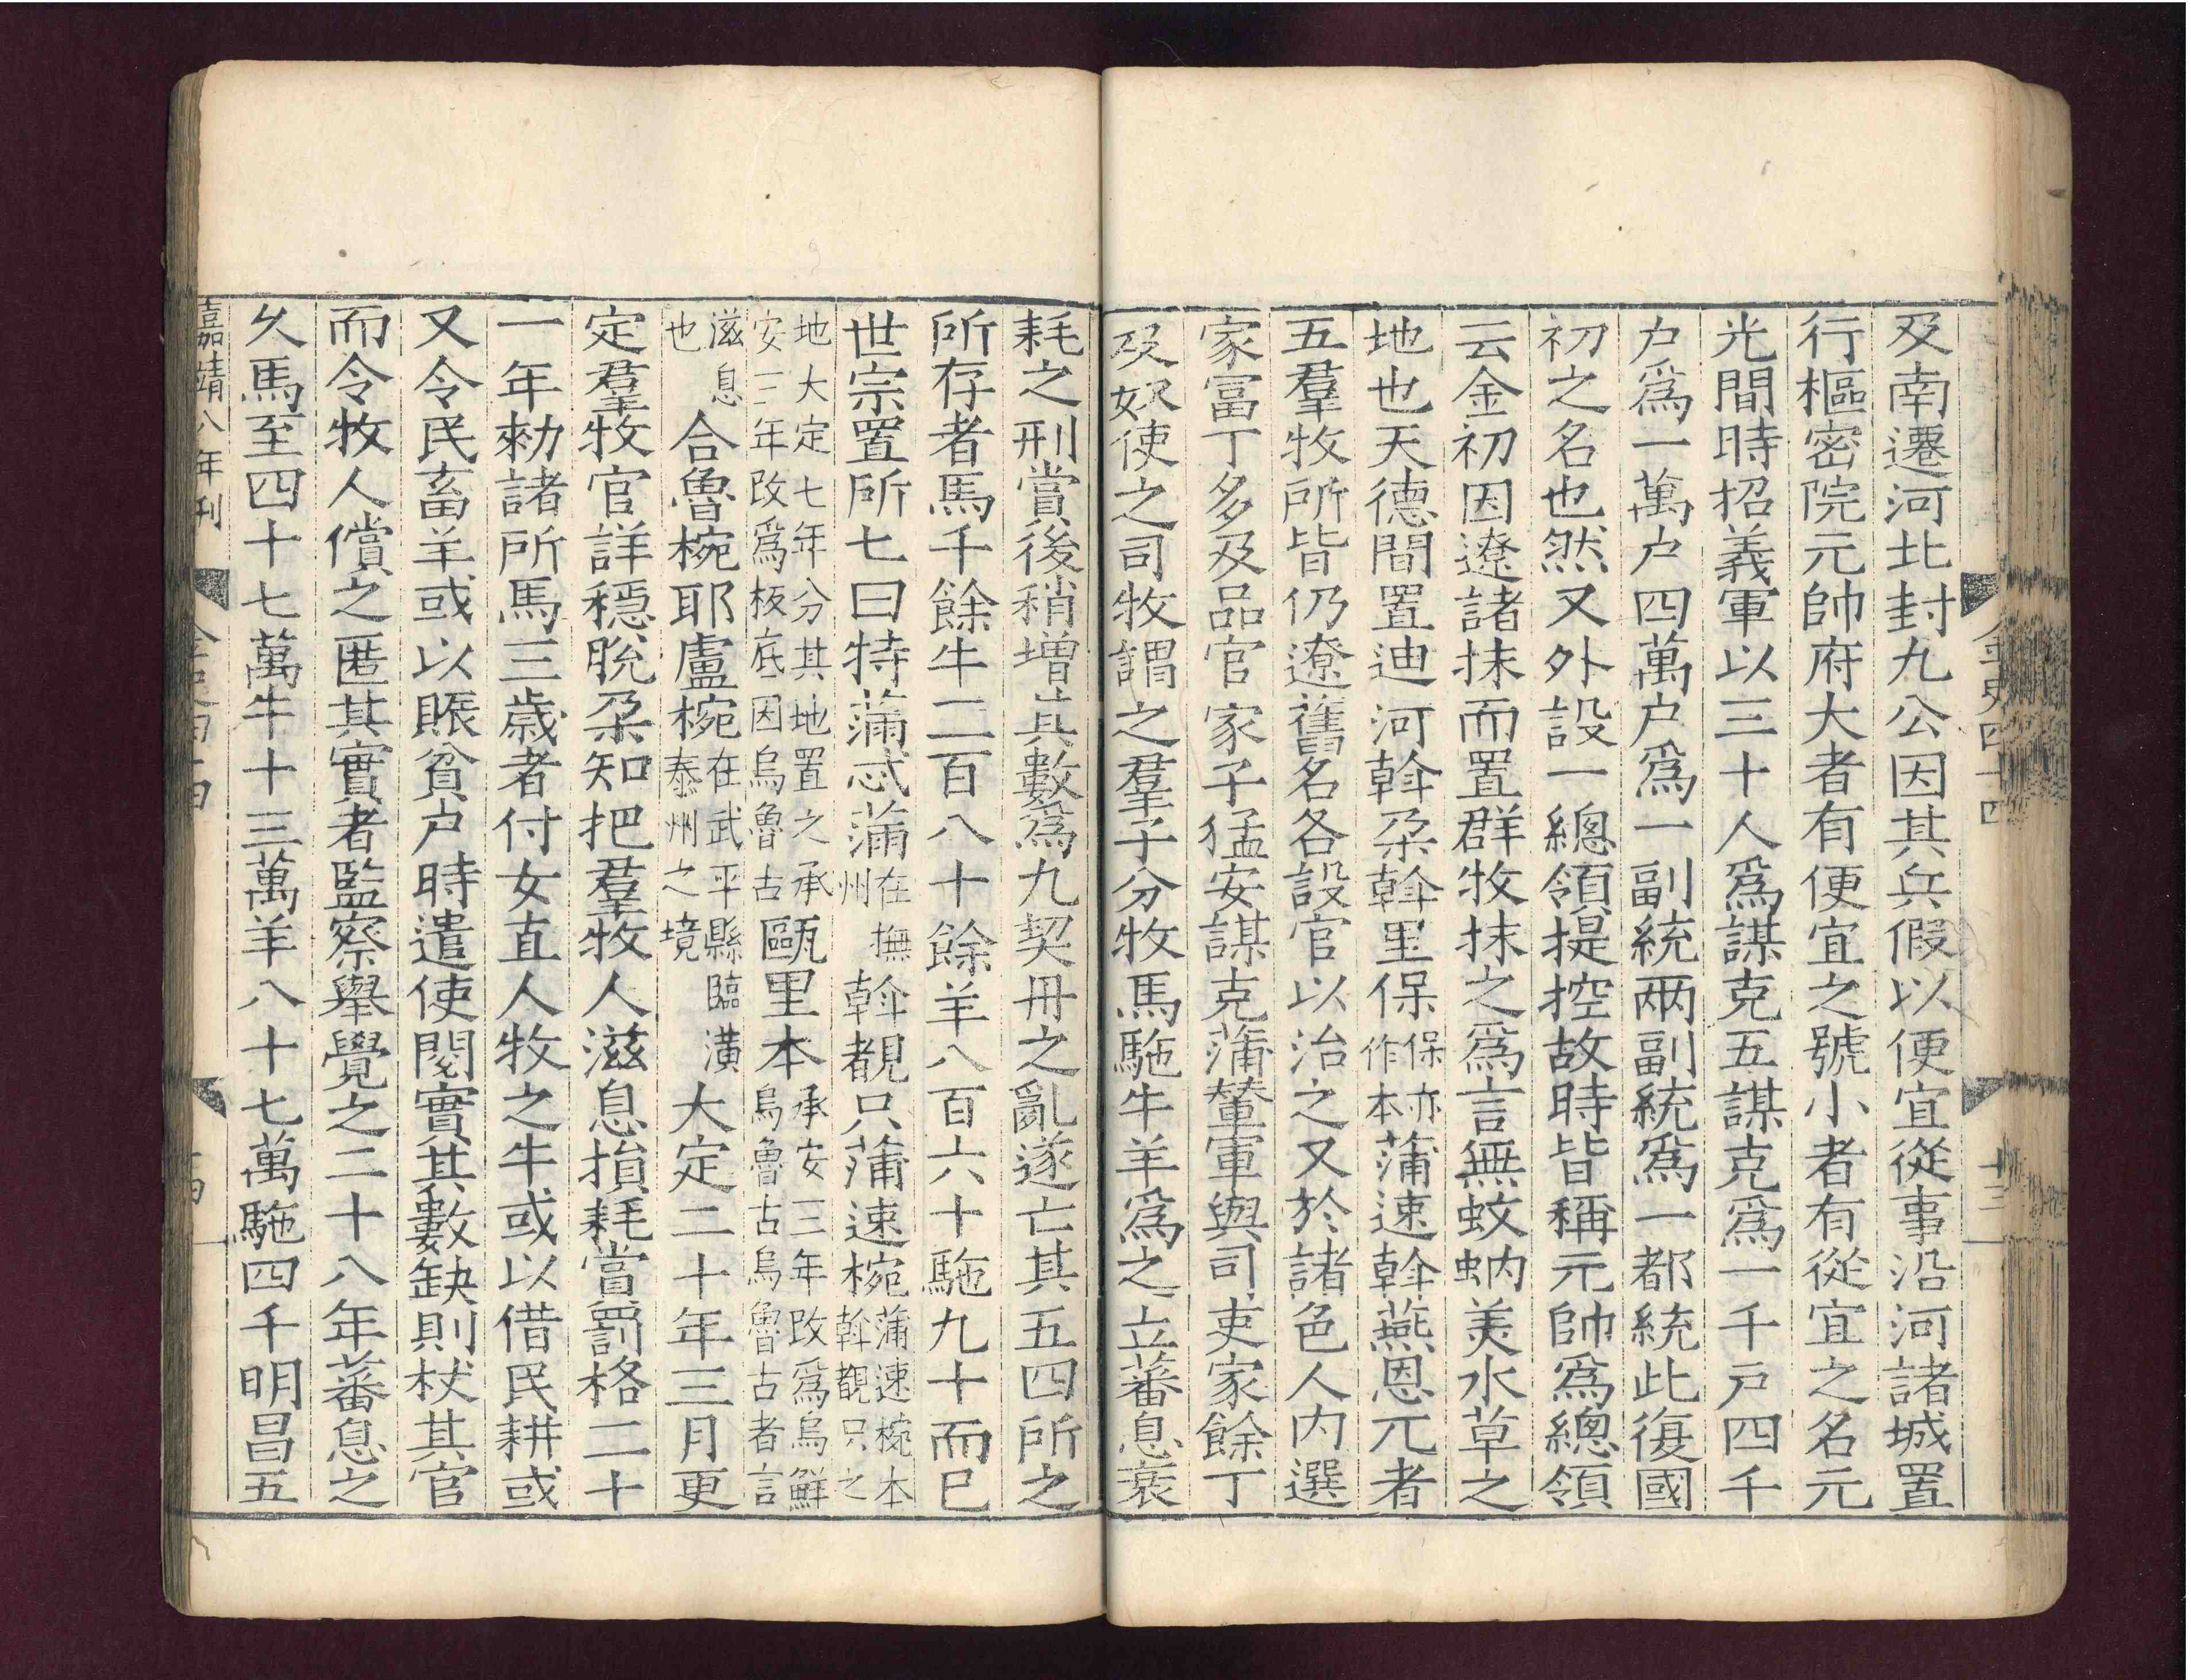 金史四十四
十三
及南遷河北封九公因其兵假以便宜從事沿河諸城置
行樞密院元帥府大者有便宜之號小者有從宜之名元
光間時招義軍以三十人爲謀克五謀克爲一千戸四千
户爲一萬户四萬户爲一副統兩副統爲一都統此復國
初之名也然又外設一總領提控故時皆稱元帥爲總領
云金初因遼諸抹而置群牧抹之爲言無蚊蚋美水草之
地也天德間置迪河斡朶斡里保保亦作本蒲速斡燕恩兀者
五羣牧所皆仍遼舊名各設官以治之又於諸色人内選
家富丁多及品官家子猛安謀克蒲輦軍與司吏家餘丁
及奴使之司牧謂之羣子分牧馬駞牛羊爲之立蕃息衰
耗之刑賞後稍增其數爲九契丹之亂遂亡其五四所之
所存者馬千餘牛二百八十餘羊八百六十駞九十而已
世宗置所七曰特蒲忒蒲在撫州斡覩只蒲速椀蒲速椀本斡覩只之
地大定七年分其地置之承安三年改爲板底因烏魯古甌里本承安三年改爲烏鮮烏魯古烏魯古者言
滋息也合魯椀耶盧椀在武平縣臨潢泰州之境大定二十年三月更
定羣牧官詳穩脫朶知把羣牧人滋息損耗當罰格二十
一年勑諸所馬三歲者付女直人牧之牛或以借民耕或
又令民畜羊或以賑貧户時遣使閱實其數缺則杖其官
而令牧人償之匿其實者監察舉覺之二十八年蕃息之
乆馬至四十七萬牛十三萬羊八十七萬駞四千明昌五
嘉靖八年刊